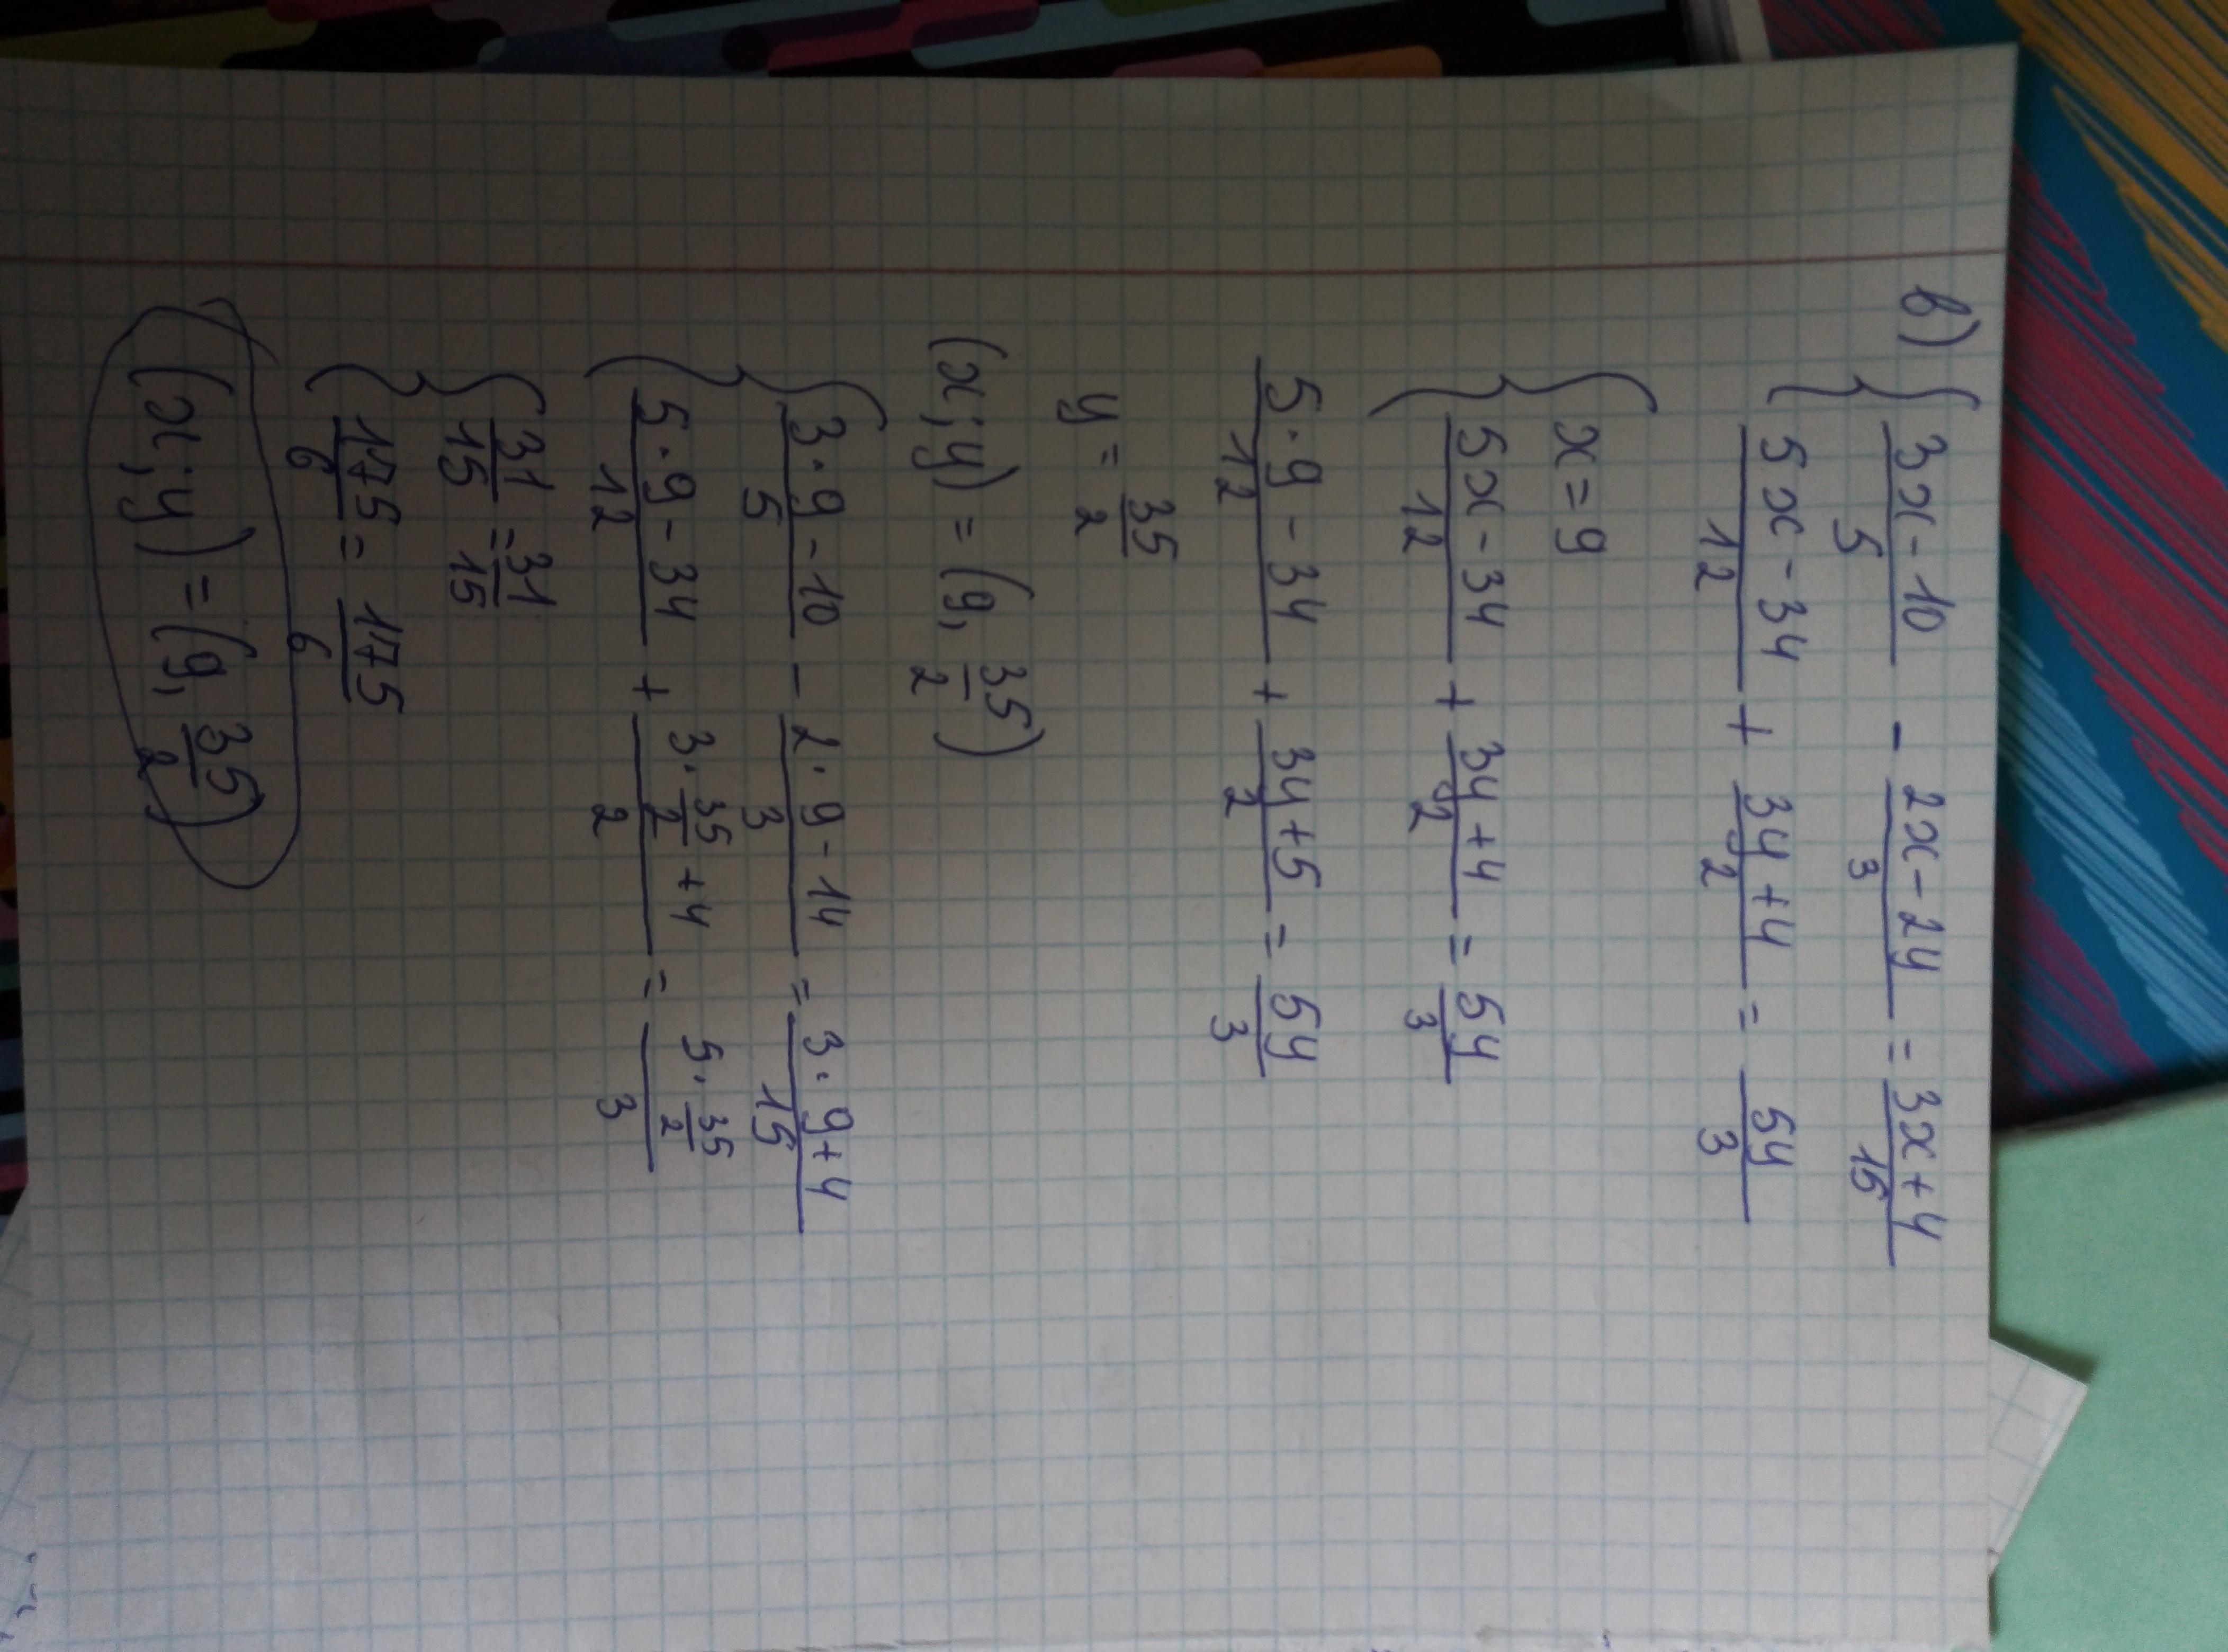 в) { (3x-10)/5 - (2x-24)/3 = (3x+4)/15
(5x-34)/12 + (3y+4)/2 = 5y/3
{ x=9
(5x-34)/12 + (3y+4)/2 = 5y/3
(5·9-34)/12 + (3y+5)/2 = 5y/3
y = 35/2
(x;y) = (9, 35/2)
{ (3·9-10)/5 - (2·9-14)/3 = (3·9+4)/15
(5·9-34)/12 + (3·35/2+4)/2 = (5·35/2)/3
{ 31/15 = 31/15
175/6 = 175/6
(x;y) = (9, 35/2)